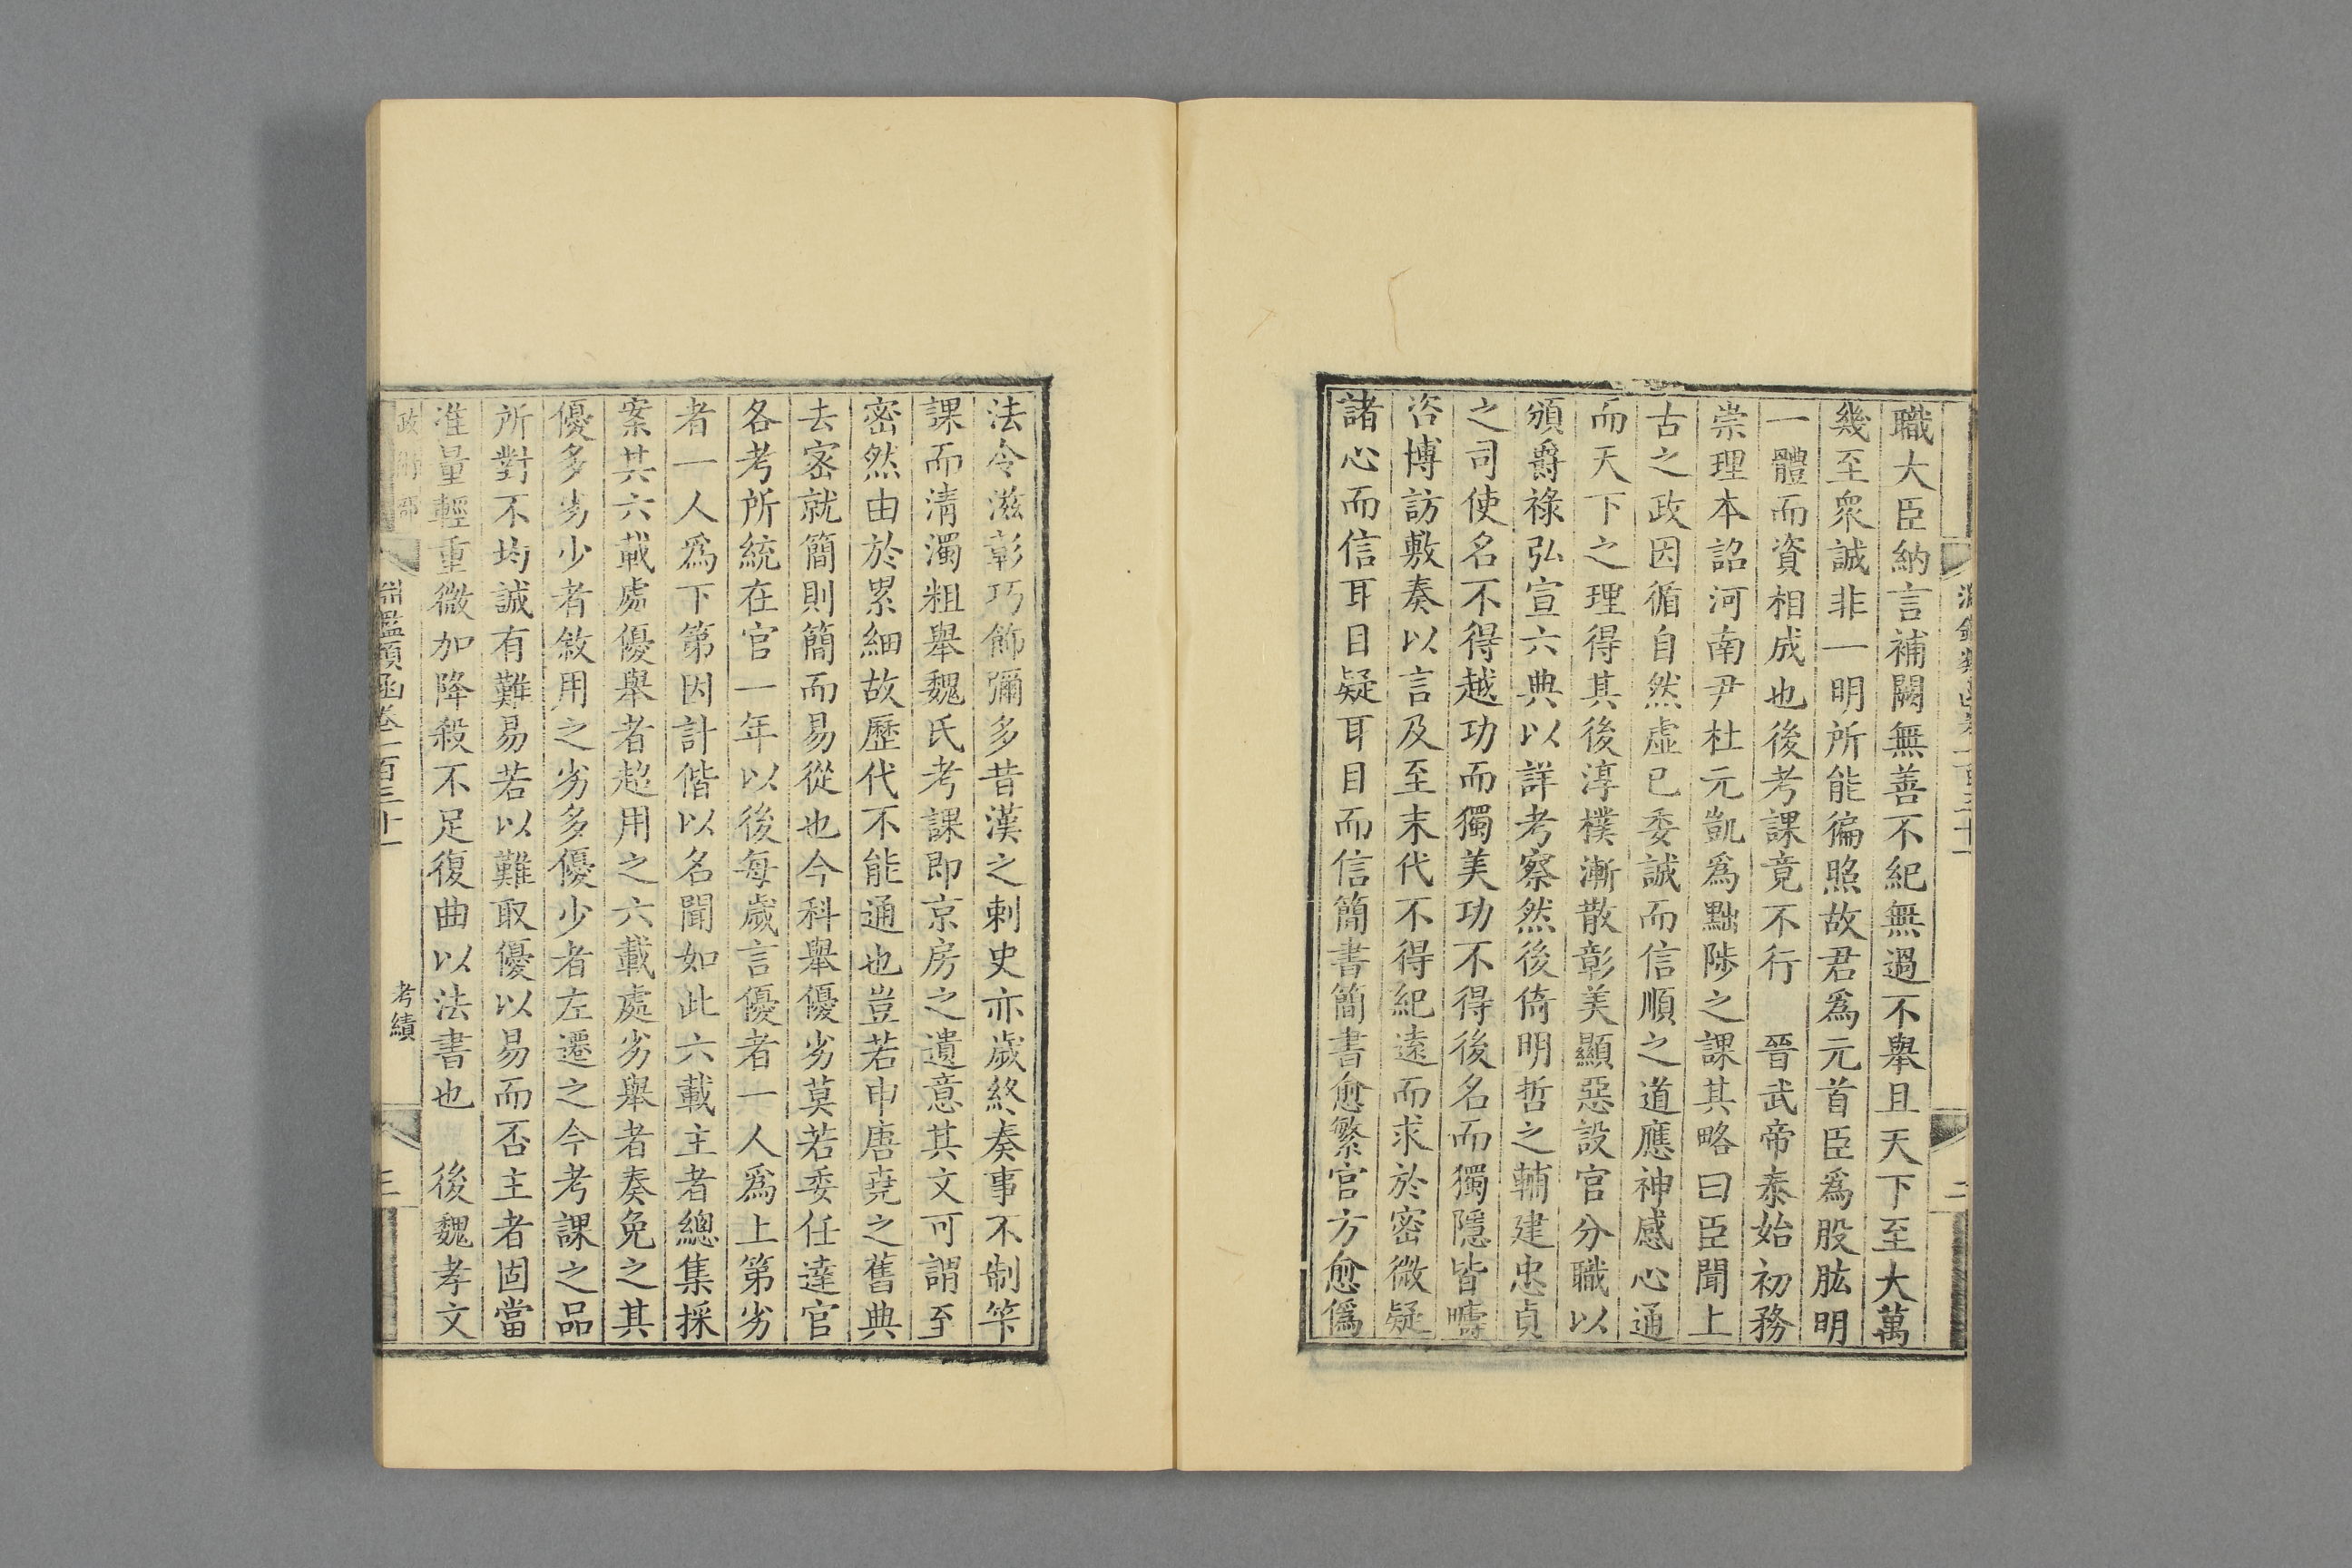 職大臣納言補闕無善不紀無過不舉且天下至大萬
幾至衆誠非一明所能徧照故君爲元首臣爲股肱明
一體而資相成也後考課竟不行　晉武帝泰始初務
崇理本詔河南尹杜元凱爲黜陟之課其略曰臣聞上
古之政因循自然虛已委誠而信順之道應神感心通
而天下之理得其後淳樸漸散彰美顯惡設官分職以
頒爵祿弘宣六典以詳考察然後倚明哲之輔建忠貞
之司使名不得越功而獨美功不得後名而獨隱皆疇
咨博訪敷奏以言及至末代不得紀遠而求於密微疑
諸心而信耳目疑耳目而信簡書簡書愈繁官方愈僞
法令滋彰巧飾彌多昔漢之刺史亦歲終奏事不制筭
課而清濁粗舉魏氏考課即京房之遺意其文可謂至
密然由於累細故歷代不能通也豈若申唐堯之舊典
去密就簡則簡而易從也今科舉優劣莫若委任達官
各考所統在官一年以後每歲言優者一人爲上第劣
者一人爲下第因計偕以名聞如此六載主者總集採
案其六載處優舉者超用之六載處劣舉者奏免之其
優多劣少者敘用之劣多優少者左遷之今考課之品
所對不均誠有難易若以難取優以易而否主者固當
准量輕重微加降殺不足復曲以法書也　後魏孝文
政術部　淵鑑類函卷一百三十一　考績　三